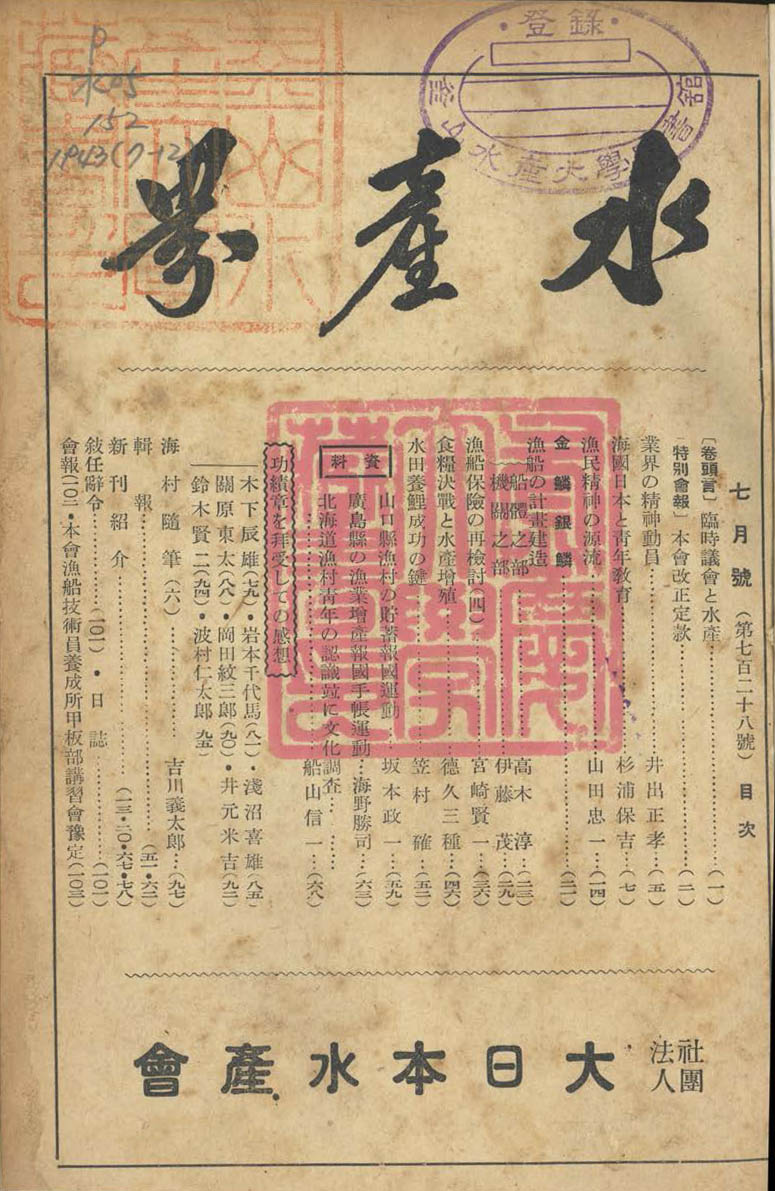 登錄
水產大學
P
152
1943(7-12)
水產界
七月號（第七百二十八號）目次
〔卷頭言〕臨時議會と水產……(一)
〔特別會報〕本會改正定款……(二)
業界の精神動員……井出正孝…(五)
海國日本と青年教育……杉浦保吉…(七)
漁民精神の源流……山田忠一…(一四)
金鱗銀鱗……(二一)
漁船の計畫建造
船體之部……高木淳…(二三)
機關之部……伊藤茂…(二九)
漁船保險の再檢討(四)……宮崎賢一…(三六)
食糧決戰と水產增殖……德久三種…(四六)
水田養鯉成功の鍵……笠村確…(五二)
資料
山口縣漁村の貯蓄報國運動……坂本政一…(五九)
廣島縣の漁業增產報國手帳運動…海野勝司…(六三)
北海道漁村青年の認識並に文化調査……船山信一…(六八)
功績章を拜受しての感想
木下辰雄(七九)・岩本千代馬(八一)・淺沼喜雄(八五)
關原東太(八八)・岡田紋三郎(九〇)・井元米吉(九二)
鈴木賢二(九四)・波村仁太郎(九五)
海村隨筆(六)……吉川義太郎…(九七)
輯報……(五一・六二)
新刊紹介……(一三・二〇・六七・七八)
敍任辭令……(一〇一)・日誌……(一〇一)
會報(一〇二)・本會漁船技術員養成所甲板部講習會豫定(一〇三)
社團法人
大日本水產會